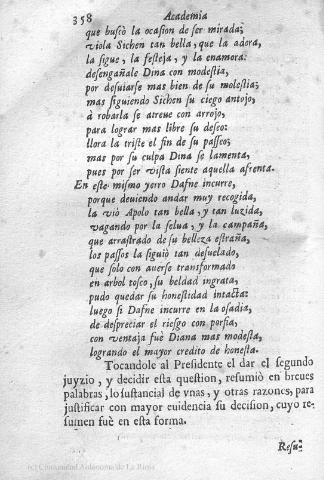 358 Academia
que buscò la ocasion de ser mirada;
viola Sichen tan bella, que la adora,
la sigue, la festeja, y la enamora:
desengañale Dina con modestia,
por desuiarse mas bien de su molestia;
mas siguiendo Sichen su ciego antojo,
à robarla se atreue con arrojo,
para lograr mas libre su deseo:
llora la triste el fin de su passeo;
mas por su culpa Dina se lamenta,
pues por ser vista siente aquella afrenta.
En este mismo yerro Dafne incurre,
porque deuiendo andar muy recogida,
la viò Apolo tan bella, y tan luzida,
vagando por la selua, y la campaña,
que arrastrado de su belleza estraña,
los passos la siguiò tan desuelado,
que solo con auerse transformado
en arbol tosco, su beldad ingrata,
pudo quedar su honestidad intacta:
luego si Dafne incurre en la osadia,
de despreciar el riesgo con porfia,
con ventaja fuè Diana mas modesta,
logrando el mayor credito de honesta.
Tocandole al Presidente el dar el segundo
juyzio, y decidir esta question, resumiò en breues
palabras, lo sustancial de vnas, y otras razones, para
justificar con mayor euidencia su decision, cuyo re-
sumen fuè en esta forma.
Resu-
(c) Comunidad Autónoma de La Rioja